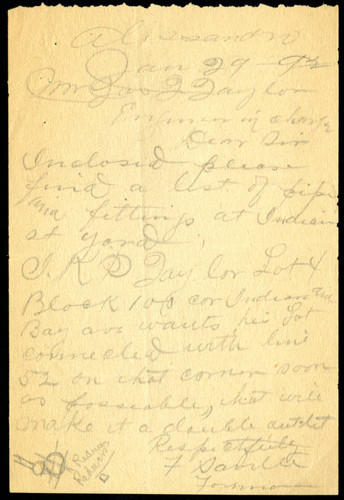 Alessandro
Jan 29 - 92
Mr Jas T Taylor
Engineer in charge
Dear Sir
Inclosed please
find a list of pipe
and fittings at Indian
st yard.
J. R. P Taylor Lot 4
Block 106 cor Indian and
Bay ave wants his Lot
connected with line
52 on that corner soon
as possiable, that will
make it a double outlet
Respectfully
F
Forman